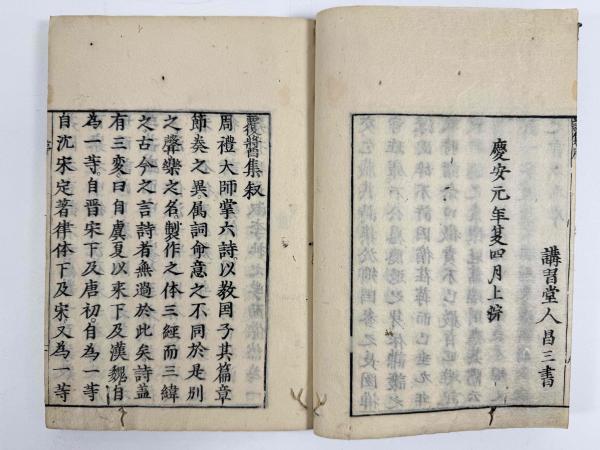 慶安元年夏四月上澣
講習堂人昌三書
覆醬集叙
周禮大師掌六詩以教国子其篇章
節奏之異属詞命意之不同於是別
之聲樂之名製作之体三經而三緯
之古今之言詩者無過於此矣詩盖
有三変曰自虞夏以来下及漢魏自
為一等。自晋宋下及唐初。自為一等
自沈宋定著律体下及宋又為一等